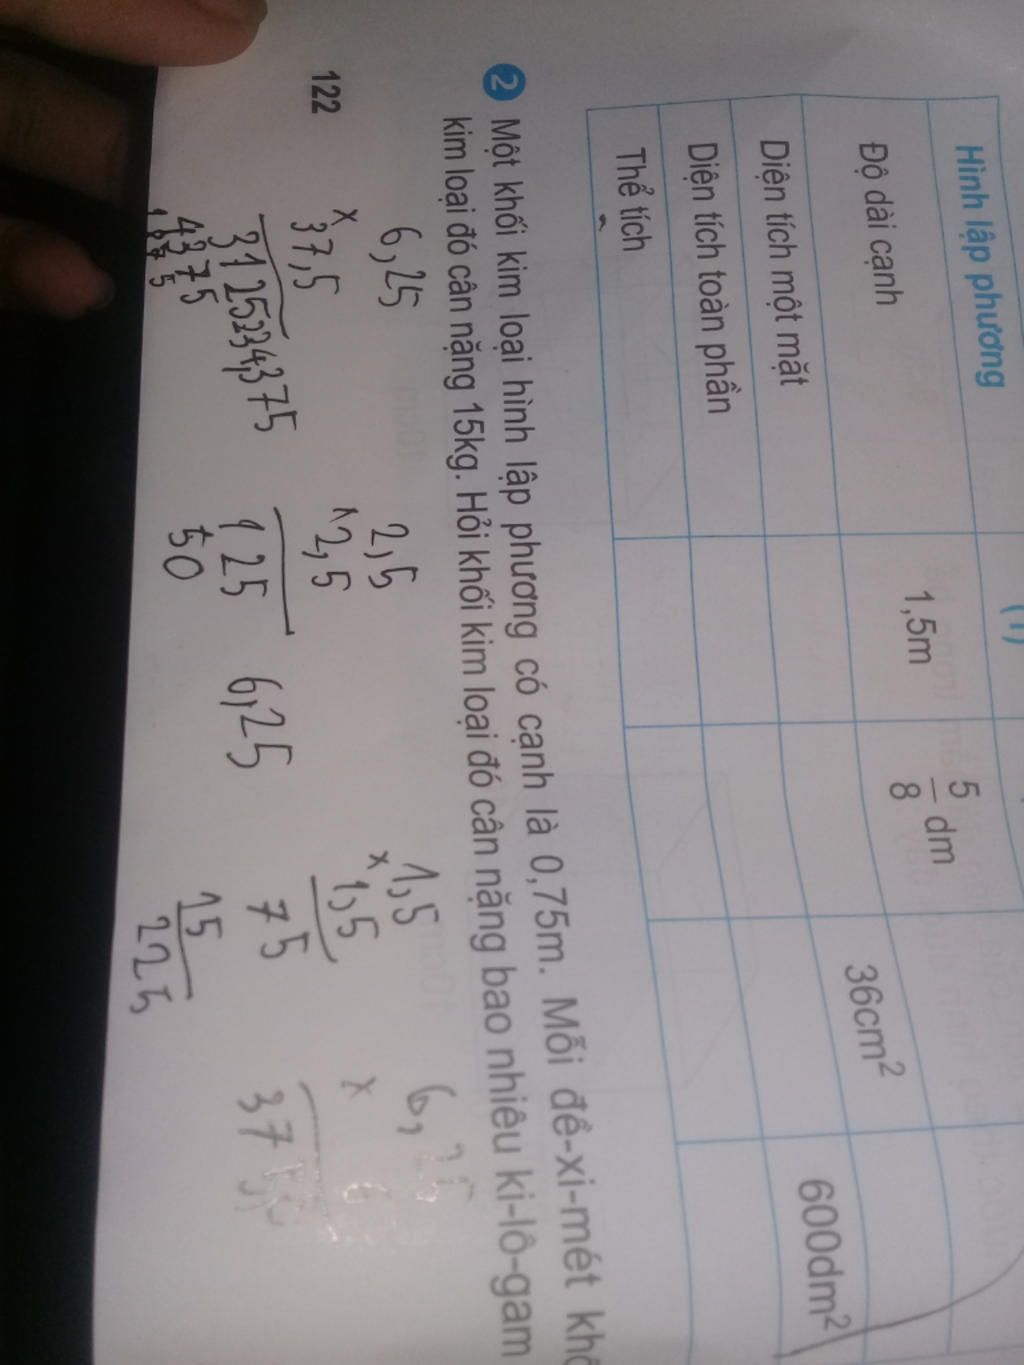 (1)
Hình lập phương
Độ dài cạnh 1,5m 5/8 dm
Diện tích một mặt 36cm²
Diện tích toàn phần 600dm²
Thể tích
2 Một khối kim loại hình lập phương có cạnh là 0,75m. Mỗi đề-xi-mét
kim loại đó cân nặng 15kg. Hỏi khối kim loại đó cân nặng bao nhiêu ki-lô-gam
6,25 2,5 1,5 6,
x 37,5 2,5 x 1,5 x
3125 234,375 125 6,25 75 37
4375 50 15
1875 225
122